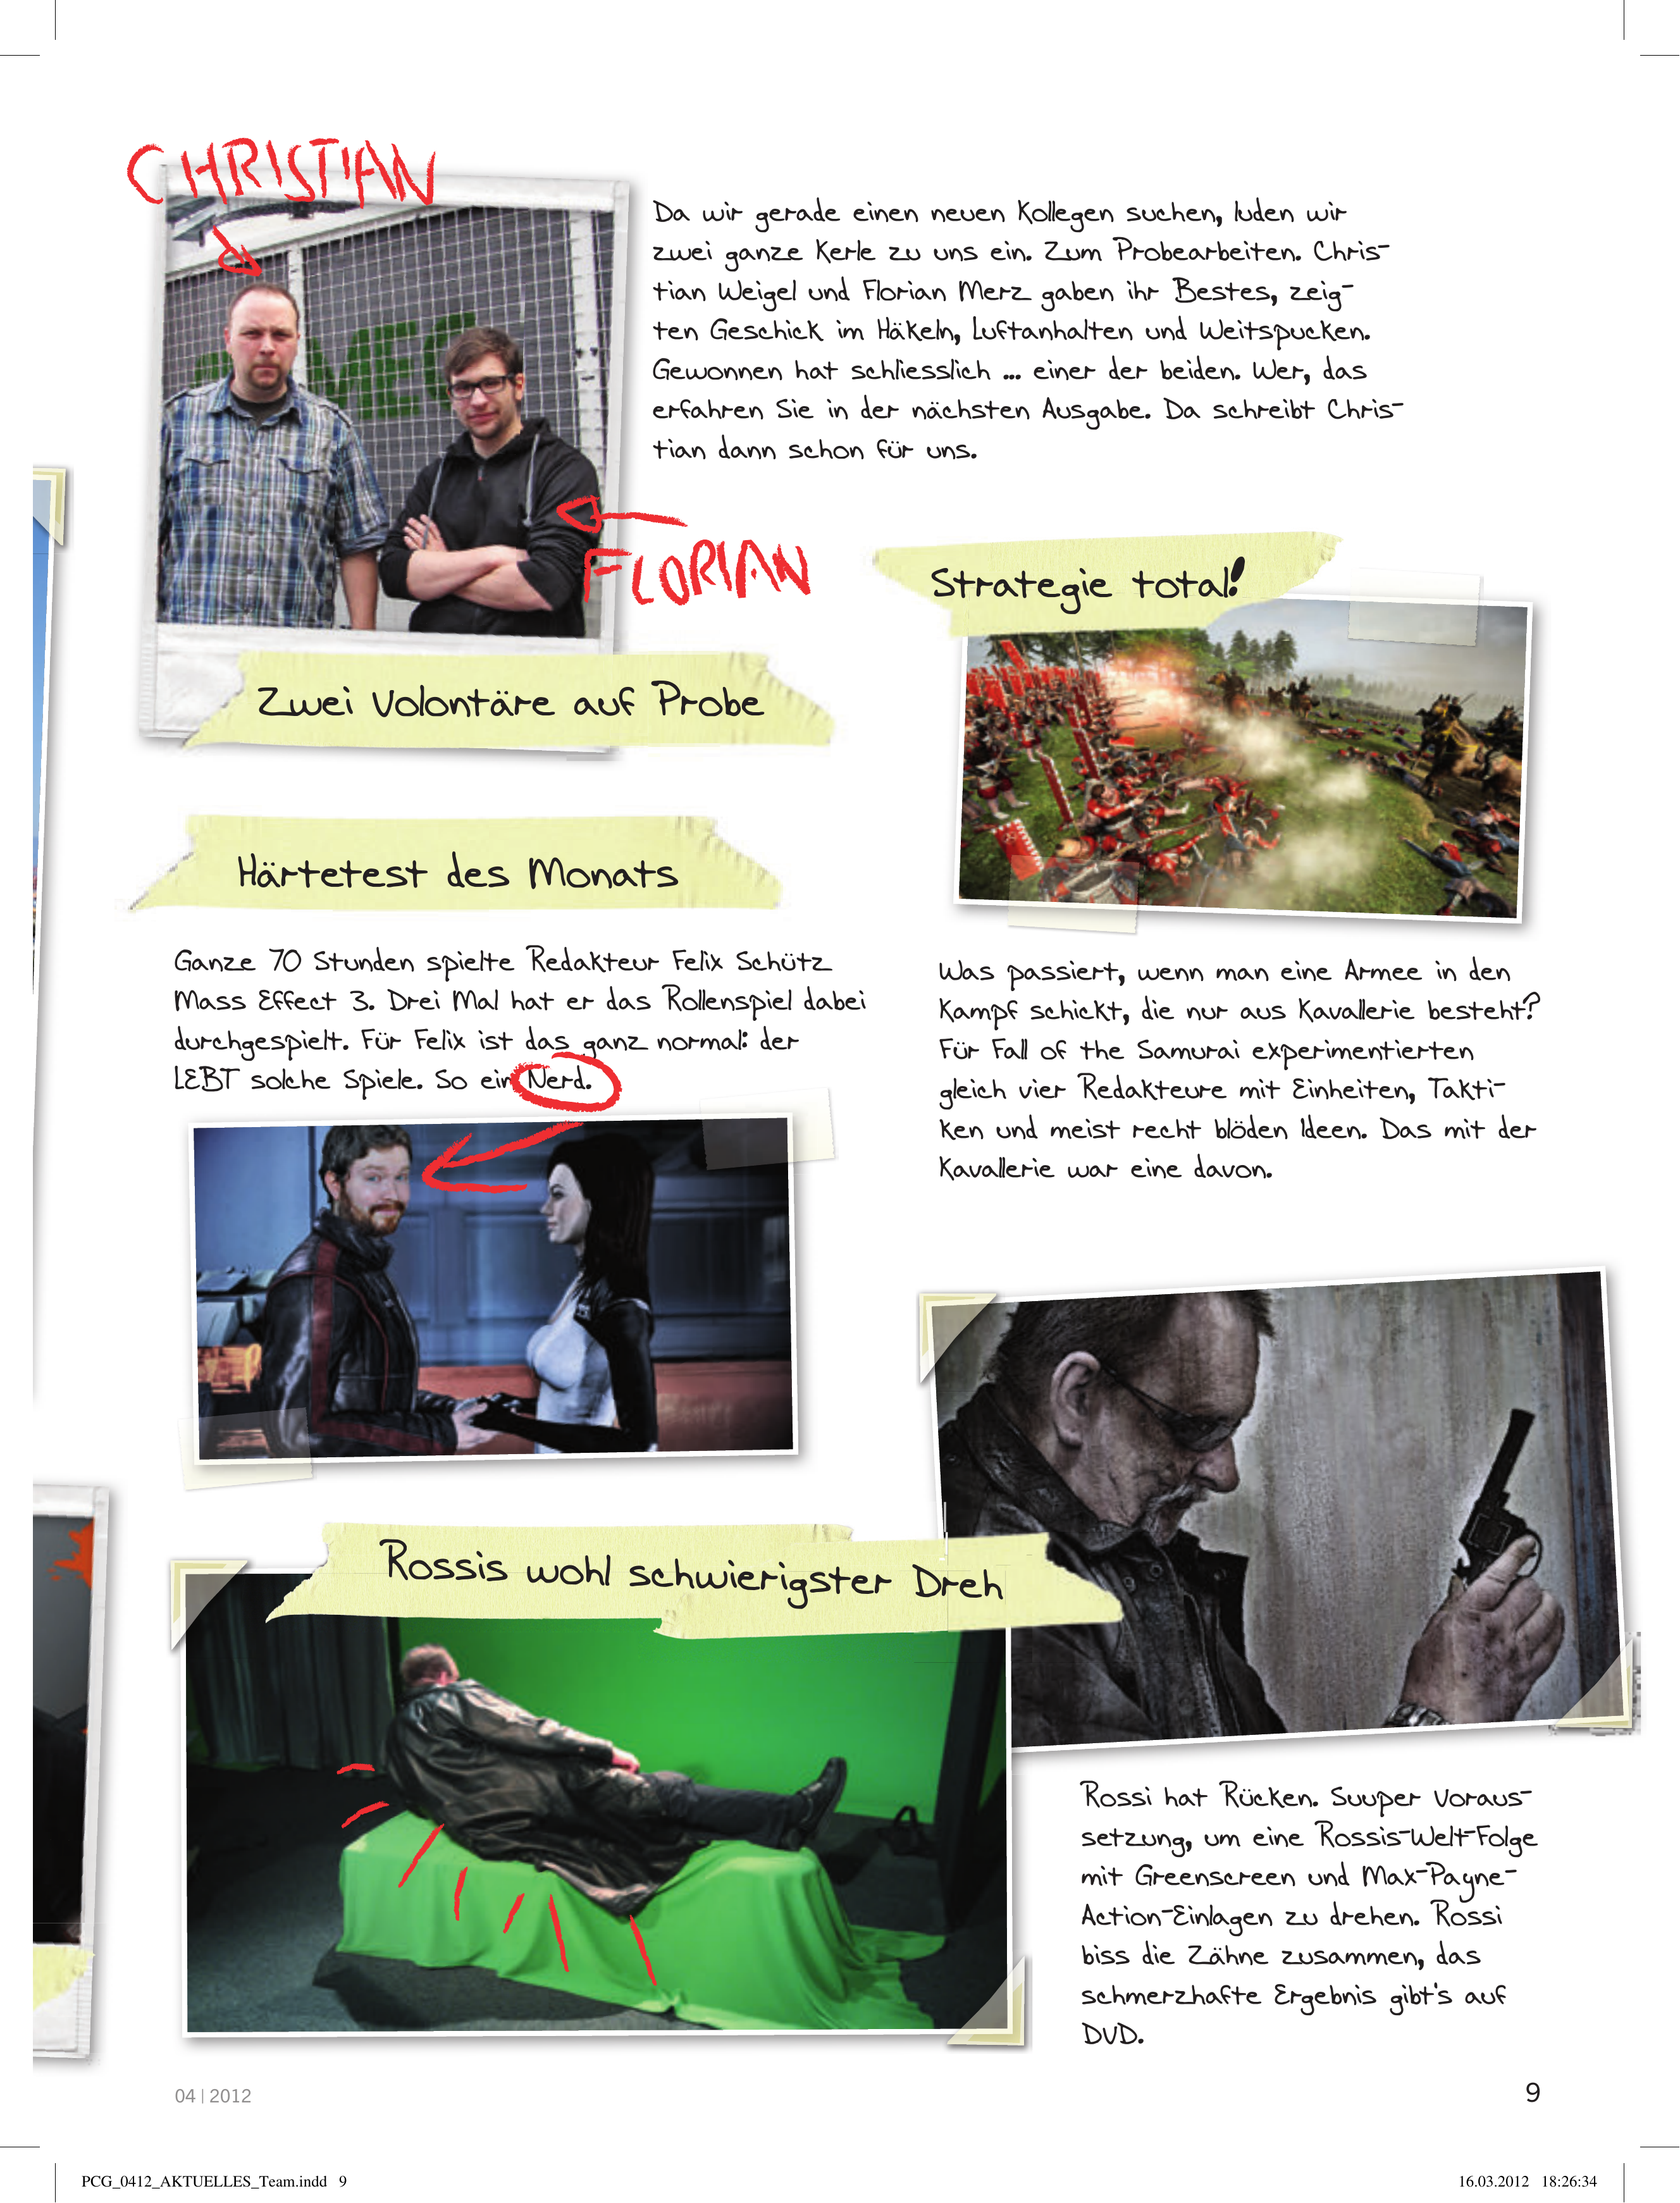 CHRISTIAN
Da wir gerade einen neuen Kollegen suchen, luden wir
zwei ganze Kerle zu uns ein. Zum Probearbeiten. Chris-
tian Weigel und Florian Merz gaben ihr Bestes, zeig-
ten Geschick im Häkeln, Luftanhalten und Weitspucken.
Gewonnen hat schliesslich ... einer der beiden. Wer, das
erfahren Sie in der nächsten Ausgabe. Da schreibt Chris-
tian dann schon für uns.
FLORIAN
Zwei Volontäre auf Probe
Strategie total!
Was passiert, wenn man eine Armee in den
Kampf schickt, die nur aus Kavallerie besteht?
Für Fall of the Samurai experimentierten
gleich vier Redakteure mit Einheiten, Takti-
ken und meist recht blöden Ideen. Das mit der
Kavallerie war eine davon.
Härtetest des Monats
Ganze 70 Stunden spielte Redakteur Felix Schütz
Mass Effect 3. Drei Mal hat er das Rollenspiel dabei
durchgespielt. Für Felix ist das ganz normal: der
LEBT solche Spiele. So ein Nerd.
Rossis wohl schwierigster Dreh
Rossi hat Rücken. Suuper Voraus-
setzung, um eine Rossis-Welt-Folge
mit Greenscreen und Max-Payne-
Action-Einlagen zu drehen. Rossi
biss die Zähne zusammen, das
schmerzhafte Ergebnis gibt's auf
DVD.
04 | 2012
9
PCG_0412_AKTUELLES_Team.indd 9
16.03.2012 18:26:34